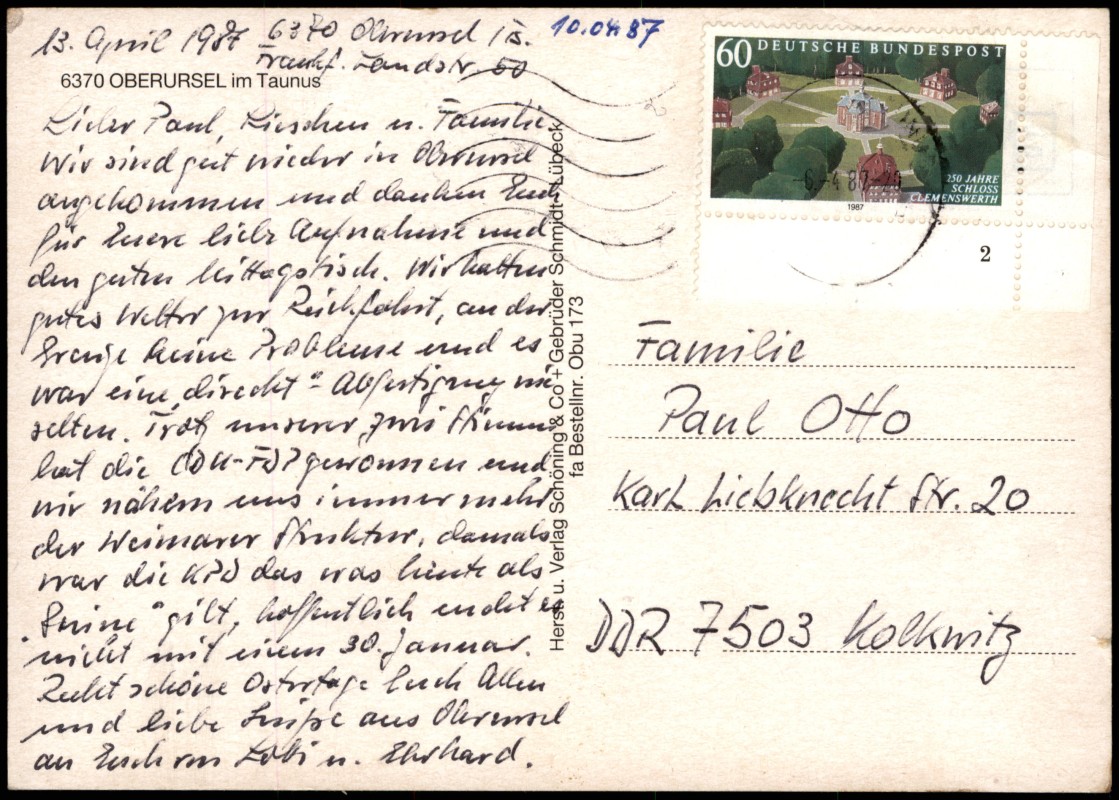 13. April 1987 6370 Oberursel Ts.
Frankf. Landstr. 50
10.04.87
6370 OBERURSEL im Taunus
Lieber Paul, Lieschen u. Familie
Wir sind gut wieder in Oberursel
angekommen und danken Euch
für Euere liebe Aufnahme und
den guten Mittagstisch. Wir hatten
gutes Wetter zur Rückfahrt, an der
Grenze keine Probleme und es
war eine „direkt" Abfertigung wie
selten. Trotz unserer zwei Stimmen
hat die CDU-FDP gewonnen und
wir nähern uns immer mehr
der Weimarer Struktur, damals
war die KPD das was heute als
„Grüne" gilt, hoffentlich endet es
nicht mit einem 30. Januar.
Recht schöne Ostertage Euch Allen
und liebe Grüße aus Oberursel
an Euch von Lobi u. Ehrhard.
Herst. u. Verlag Schöning & Co + Gebrüder Schmidt - Lübeck
fa Bestellnr. Obu 173
60 DEUTSCHE BUNDESPOST
250 JAHRE
SCHLOSS
CLEMENSWERTH
1987
-6.-4 87-20
2
Familie
Paul Otto
Karl Liebknecht Str. 20
DDR 7503 Kolkwitz